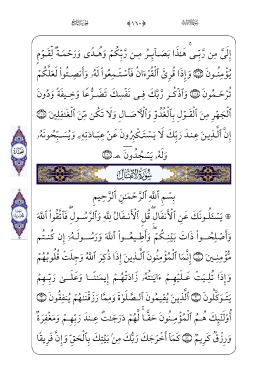 ﴿١٦٠﴾
إِلَىَّ مِن رَّبِّى هَٰذَا بَصَآئِرُ مِن رَّبِّكُمْ وَهُدًى وَرَحْمَةٌ لِّقَوْمٍ
يُؤْمِنُونَ وَإِذَا قُرِئَ ٱلْقُرْءَانُ فَٱسْتَمِعُوا۟ لَهُۥ وَأَنصِتُوا۟ لَعَلَّكُمْ
تُرْحَمُونَ وَٱذْكُر رَّبَّكَ فِى نَفْسِكَ تَضَرُّعًا وَخِيفَةً وَدُونَ
ٱلْجَهْرِ مِنَ ٱلْقَوْلِ بِٱلْغُدُوِّ وَٱلْءَاصَالِ وَلَا تَكُن مِّنَ ٱلْغَٰفِلِينَ
إِنَّ ٱلَّذِينَ عِندَ رَبِّكَ لَا يَسْتَكْبِرُونَ عَنْ عِبَادَتِهِۦ وَيُسَبِّحُونَهُۥ
وَلَهُۥ يَسْجُدُونَ
سُورَةُ ٱلْأَنفَالِ
بِسْمِ ٱللَّهِ ٱلرَّحْمَٰنِ ٱلرَّحِيمِ
يَسْـَٔلُونَكَ عَنِ ٱلْأَنفَالِ قُلِ ٱلْأَنفَالُ لِلَّهِ وَٱلرَّسُولِ فَٱتَّقُوا۟ ٱللَّهَ
وَأَصْلِحُوا۟ ذَاتَ بَيْنِكُمْ وَأَطِيعُوا۟ ٱللَّهَ وَرَسُولَهُۥٓ إِن كُنتُم
مُّؤْمِنِينَ إِنَّمَا ٱلْمُؤْمِنُونَ ٱلَّذِينَ إِذَا ذُكِرَ ٱللَّهُ وَجِلَتْ قُلُوبُهُمْ
وَإِذَا تُلِيَتْ عَلَيْهِمْ ءَايَٰتُهُۥ زَادَتْهُمْ إِيمَٰنًا وَعَلَىٰ رَبِّهِمْ
يَتَوَكَّلُونَ ٱلَّذِينَ يُقِيمُونَ ٱلصَّلَوٰةَ وَمِمَّا رَزَقْنَٰهُمْ يُنفِقُونَ
أُو۟لَٰٓئِكَ هُمُ ٱلْمُؤْمِنُونَ حَقًّا لَّهُمْ دَرَجَٰتٌ عِندَ رَبِّهِمْ وَمَغْفِرَةٌ
وَرِزْقٌ كَرِيمٌ كَمَآ أَخْرَجَكَ رَبُّكَ مِنۢ بَيْتِكَ بِٱلْحَقِّ وَإِنَّ فَرِيقًا